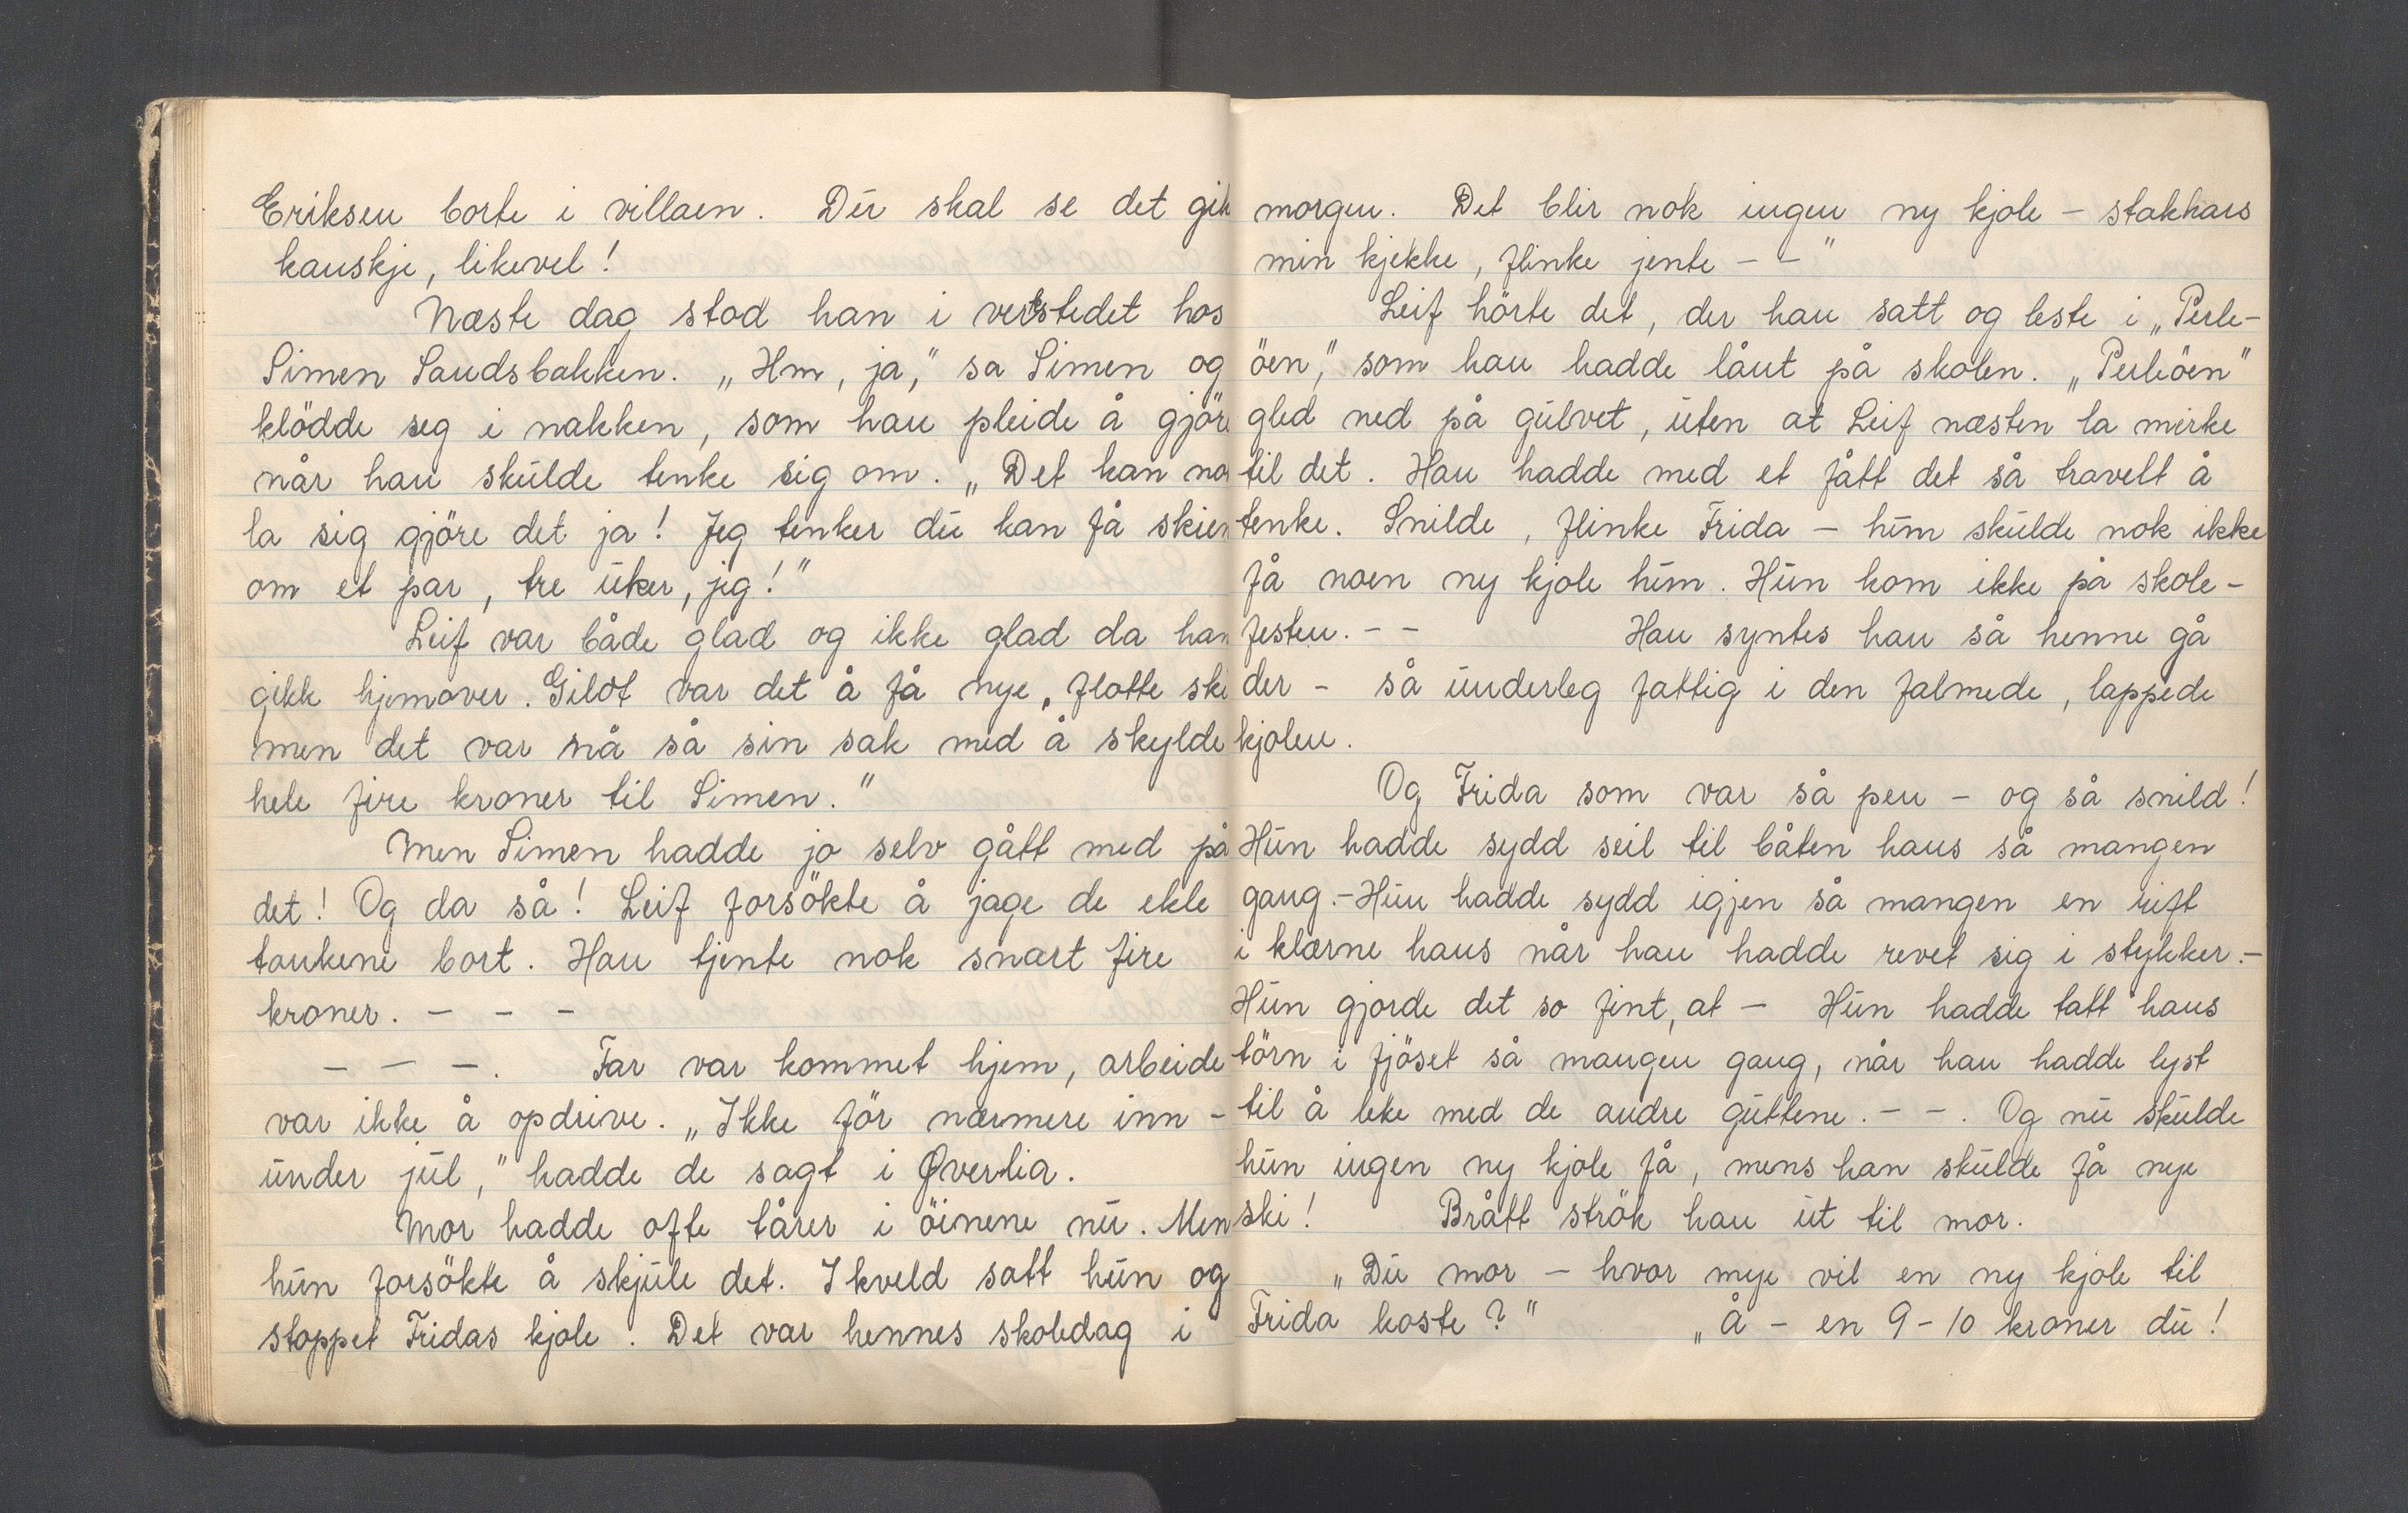 Eriksen borte i villaen. Du skal se det gik
kanskje, likevel!
Næste dag stod han i verkstedet hos
Simen Sandsbakken. „Hm, ja,” sa Simen og
klödde seg i nakken, som han pleide å gjöre
når han skulde tenke sig om. „Det kan nok
la sig gjöre det ja! Jeg tenker du kan få skien
om et par, tre uker, jeg!”
Leif var både glad og ikke glad da han
gikk hjemover. Gildt var det å få nye, flotte ski
men det var nå så sin sak med å skylde
hele fire kroner til Simen.”
Men Simen hadde jo selv gått med på
det! Og da så! Leif forsökte å jage de ekle
tankene bort. Han tjente nok snart fire
kroner. – – –
– – –. Far var kommet hjem, arbeide
var ikke å opdrive. „Ikke för nærmere inn-
under jul,” hadde de sagt i Øverlia.
Mor hadde ofte tårer i öinene nu. Men
hun forsökte å skjule det. I kveld satt hun og
stoppet Fridas kjole. Det var hennes skoledag i
morgen. Det blir nok ingen ny kjole – stakkars
min kjekke, flinke jente – –”
Leif hörte det, der han satt og leste i „Perle-
öen,” som han hadde lånt på skolen. „Perleöen”
gled ned på gulvet, uten at Leif næsten la merke
til det. Han hadde med et fått det så travelt å
tenke. Snilde, flinke Frida – hun skulde nok ikke
få noen ny kjole hun. Hun kom ikke på skole-
festen. – – Han syntes han så henne gå
der – så underleg fattig i den falmede, lappede
kjolen.
Og Frida som var så pen – og så snild!
Hun hadde sydd seil til båten hans så mangen
gang. – Hun hadde sydd igjen så mangen en rift
i klærne hans når han hadde revet sig i stykker. –
Hun gjorde det so fint, at – Hun hadde tatt hans
törn i fjöset så mangen gang, når han hadde lyst
til å leke med de andre guttene. – –. Og nu skulde
hun ingen ny kjole få, mens han skulde få nye
ski! Brått strök han ut til mor.
„Du mor – hvor mye vil en ny kjole til
Frida koste?” „Å – en 9-10 kroner du!